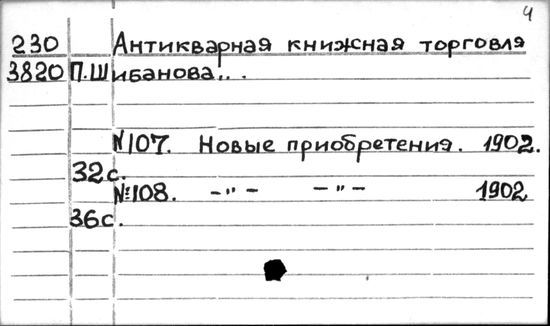 4
230 Антикварная книжная торговля
3820 П.Шибанова...
N107. Новые приобретения. 1902.
32с.
№108. -"- -"- 1902
36с.